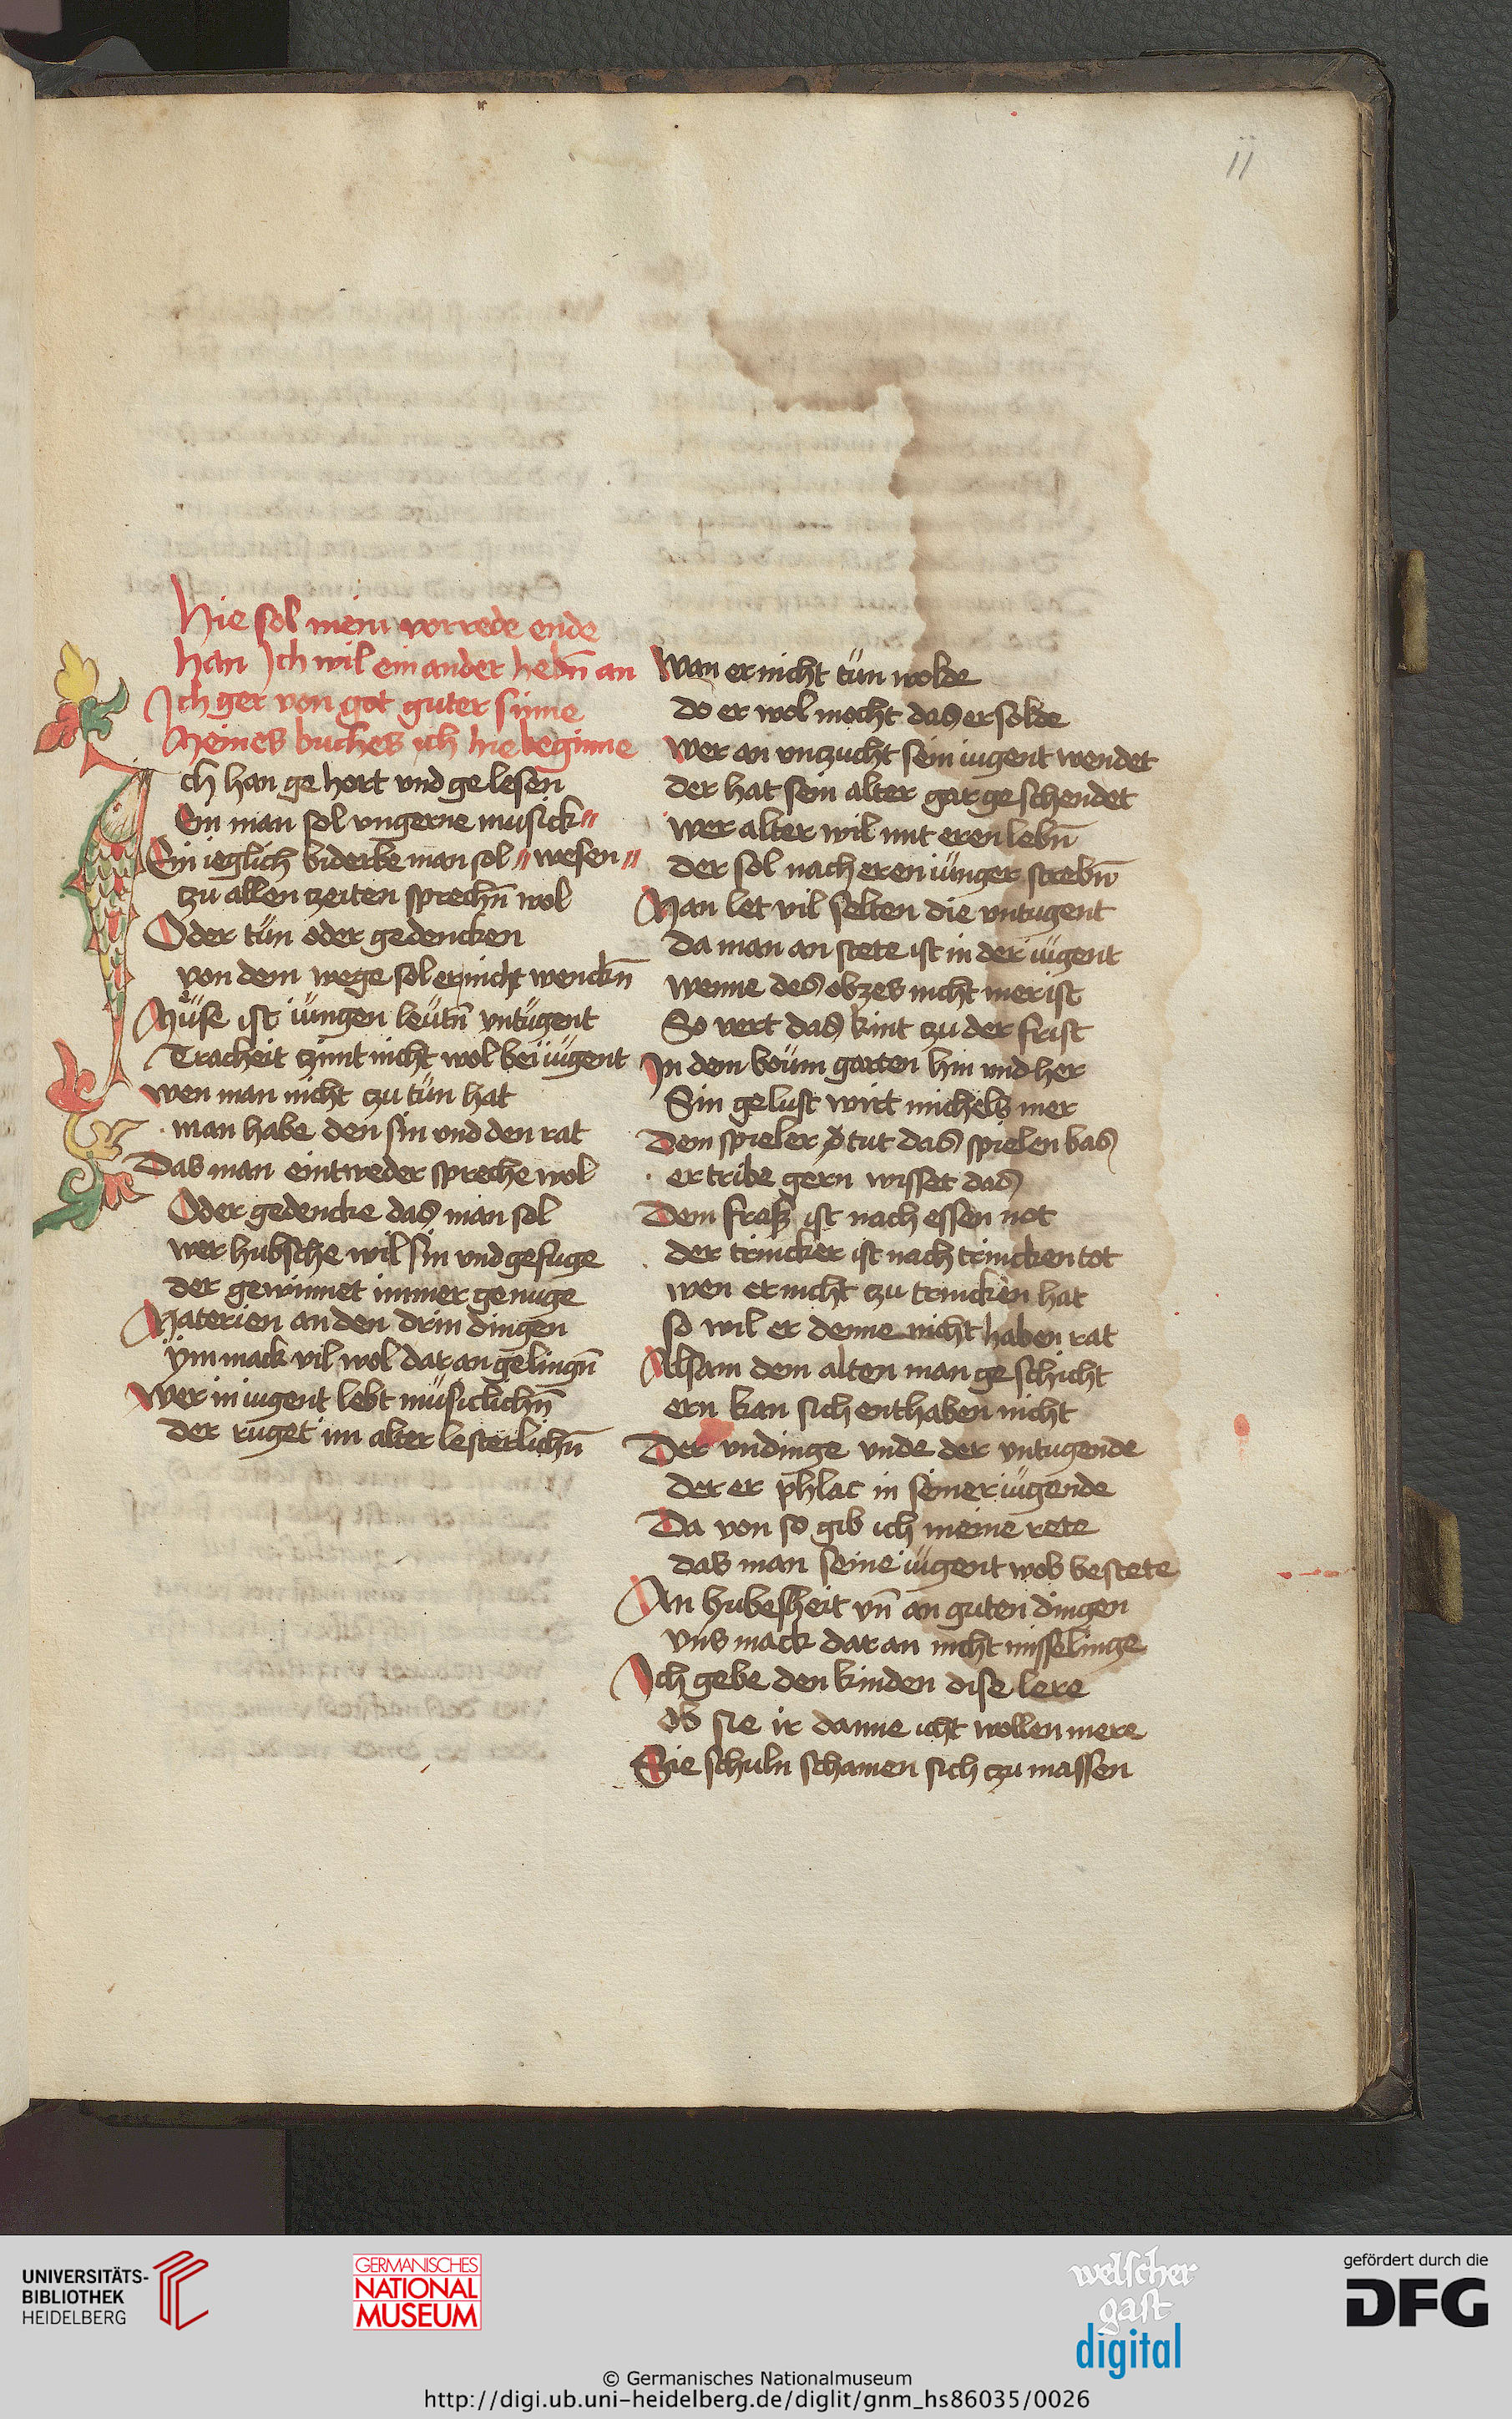 11
Hie sol mein vorrede ende
han Ich wil ein ander hebn̄ an
Ich ger von got guter sinne
Meines buches ich hie beginne
Ich han ge hort vnd ge lesen
Ein man sol vngerne musick〃
Ein ieglich biderbe man sol 〃wesen〃
zu allen zeiten sprechn̄ wol
Oder tün oder gedencken
von dem wege sol er nicht wenckn̄
Müse ist iüngen leütn̄ vntügent
Tracheit zimt nicht wol bei iügent
wen man nicht zu tün hat
man habe den sin vnd den rat
Das man eintweder spreche wol
Oder gedencke das man sol
wer hubsche wil sin vnd gefuge
der gewinnet immer genuge
Materien an den drin dingen
ÿm mack vil wol dar an gelingn̄
Wer in iugent lebt müsiclichn̄
der ruget im alter lesterlichn̄
Wan er nicht tün wolde
do er wol mocht das er solde
Wer an vnzucht sein iugent wendet
der hat sein alter gar ge schendet
wer alter wil mit eren lebn̄
der sol nach eren iünger strebn̄
Man let vil selten die vntugent
da man an stete ist in der iügent
wenne des obzes nicht mer ist
So vert das kint zu der frist
In dem boum garten hin vnd her
Sin gelust wirt michels mer
Dem spieler tut das spielen bas
er tribe gern wisset das
Dem fraß ist nach essen not
der trincker ist nach trincken tot
wen er nicht zu trincken hat
so wil er denne nicht haben rat
Alsam dem alten man ge schicht
ern kan sich enthaben nicht
Der vndinge vnde der vntugende
der er phlac in seiner iügende
Da von so gib ich meine rete
das man seine iügent wol bestete
An hubesheit vn̄ an guten dingen
vns mack dar an nicht misselinge
Ich gebe den kinden dise lere
ob sie ir danne icht wollen mere
Sie schuln schamen sich zu massen
UNIVERSITÄTS-
BIBLIOTHEK
HEIDELBERG
GERMANISCHES
NATIONAL
MUSEUM
welscher
gast
digital
gefördert durch die
DFG
© Germanisches Nationalmuseum
http://digi.ub.uni-heidelberg.de/diglit/gnm_hs86035/0026